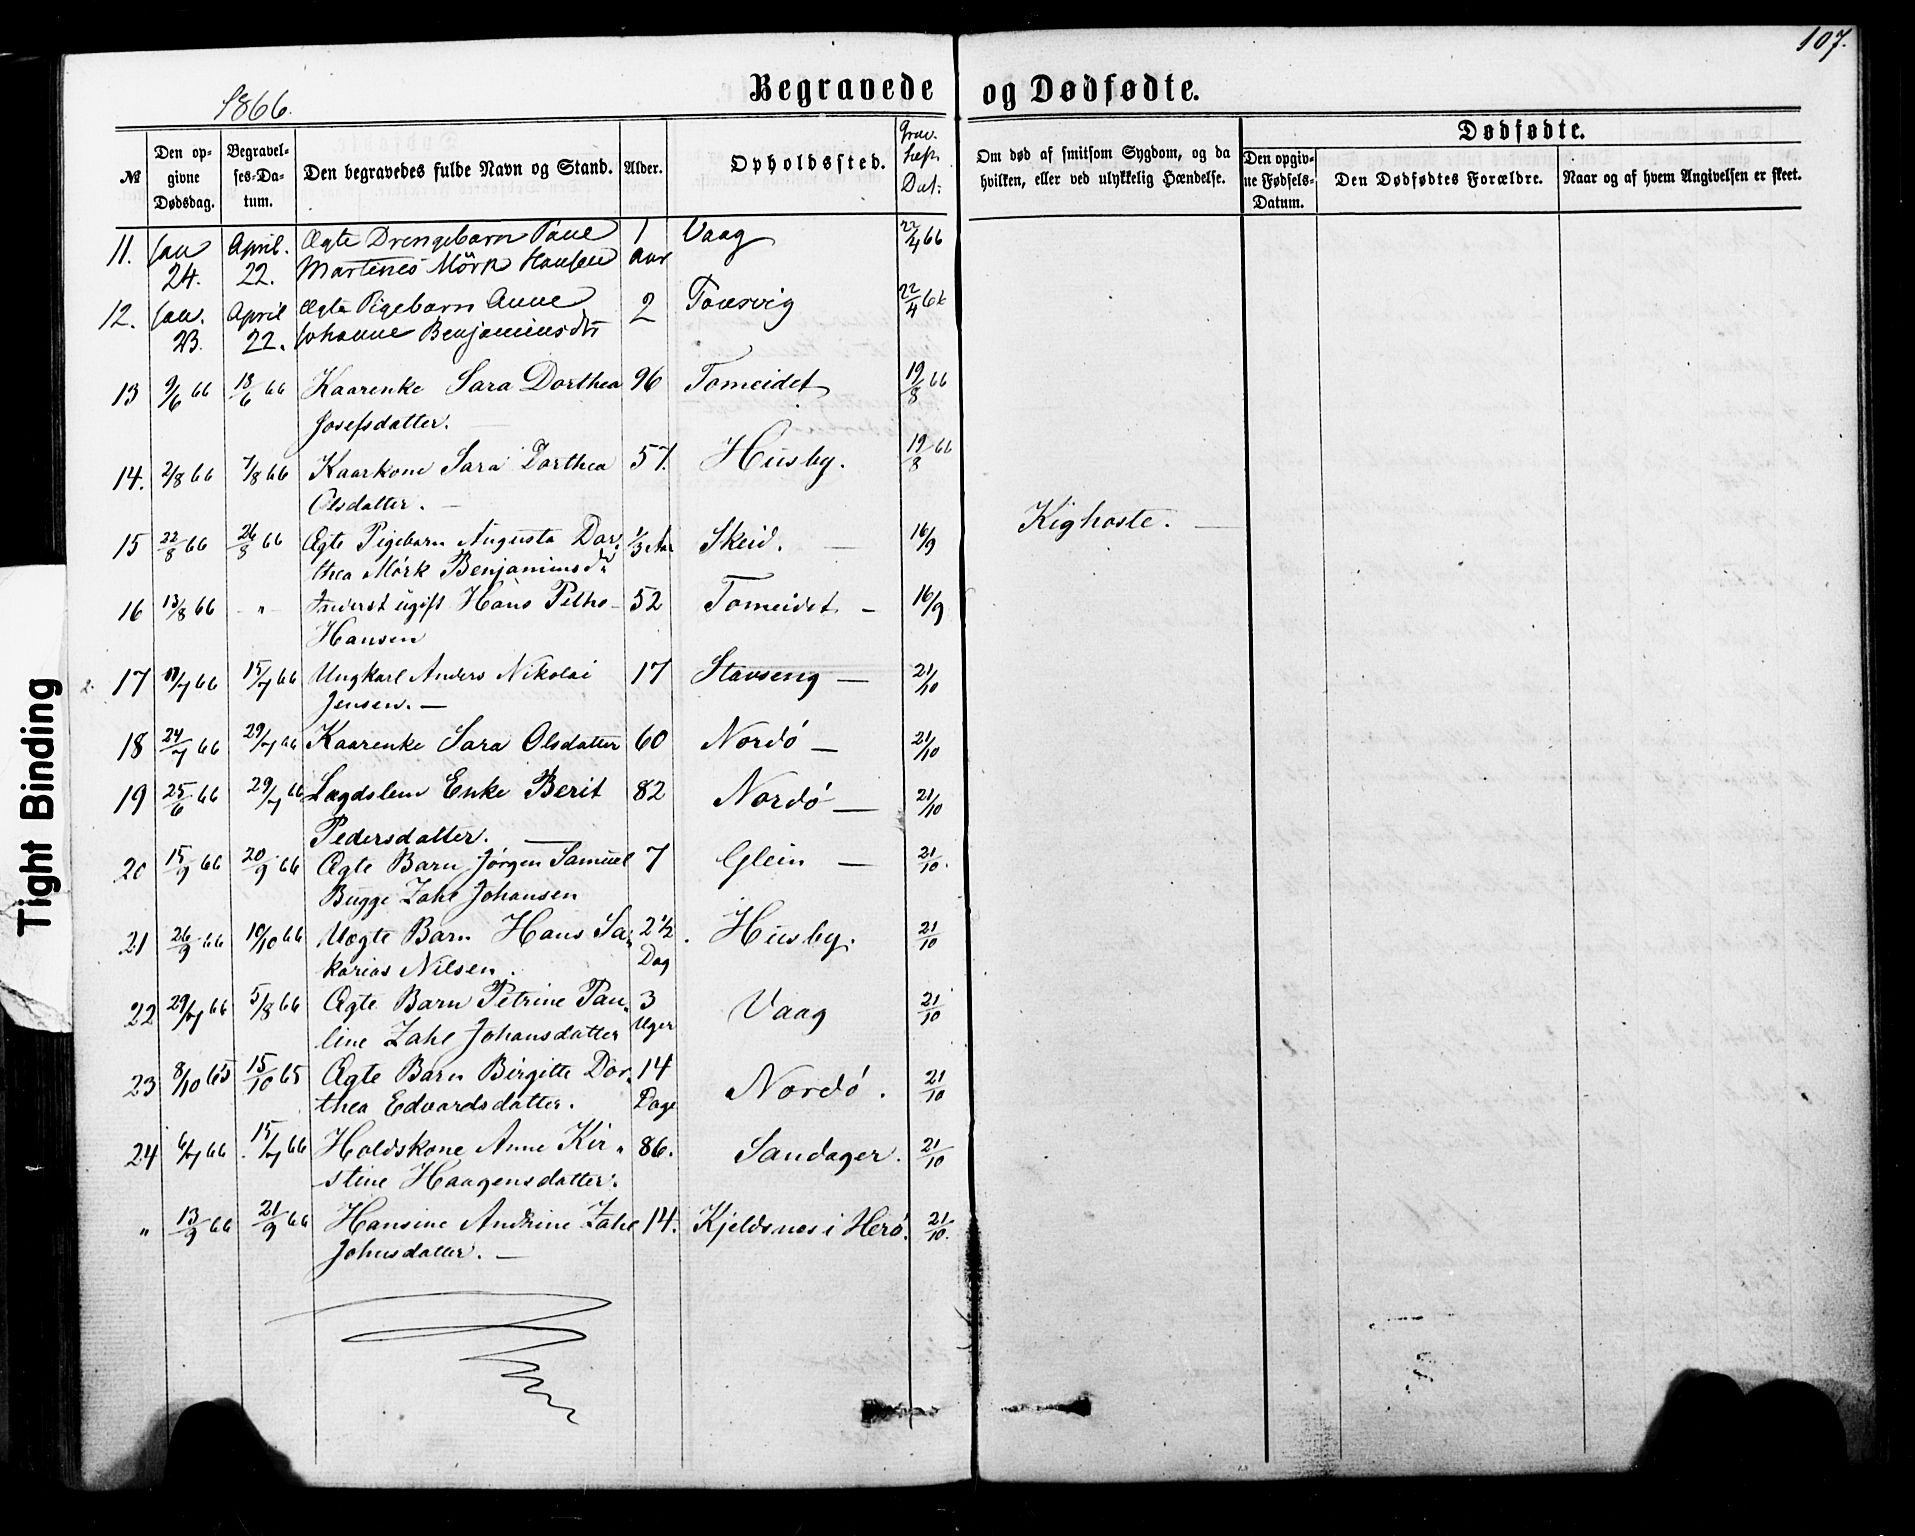 107.
1866.
Begravede og Dødfødte.
№
Den opgivne Dødsdag.
Begravelses-Datum.
Den begravedes fulde Navn og Stand.
Alder.
Opholdssted.
Dat:
Om død af smitsom Sygdom, og da hvilken, eller ved ulykkelig Hændelse.
Dødfødte.
Den opgivne Fødsels-Datum.
Den Dødfødtes Forældre.
Naar og af hvem Angivelsen er skeet.
11. Jan April. Ægte Drengebarn Paul 1 Vaag 22/4 66
24. 22. Martines Mörk Hansen Aar
12. Jan. April Ægte Pigebarn Anne 2 Tousvig 22/4 66
23. 22. Johanne Benjaminsdtr
13 9/6 66 18/6 66 Kaarenke Sara Dorthea 96 Tomeidet 19/8 66
Josefsdatter.
14. 2/8 66 7/8 66 Kaarkone Sara Dorthea 57. Husby. 19/8 66
Olsdatter. —
15 22/8 66 26/8 66 Ægte Pigebarn Augusta Dor- 1/3 Aar Skeid. — 16/9 Kighoste. —
thea Mörk Benjaminsdr
16 13/8 66 - " - Inderst ugift Hans Peths- 52 Tomeidet — 16/9
Hansen
17 11/7 66 15/7 66 Ungkarl Anders Nikolai 17 Stavseng — 21/10
Jensen. —
18 24/7 66 29/7 66 Kaarenke Sara Olsdatter 60 Nordö — 21/10
19 25/6 66 29/7 66 Lægdslem Enke Berit 82 Nordö — 21/10
Pedersdatter. —
20 15/9 66 20/9 66 Ægte Barn Jørgen Samuel 7 Glein — 21/10.
Bugge Zahl Johansen
21 26/9 66 10/10 66 Uægte Barn Hans Sa- 2 1/2 Husby. 21/10
karias Nilsen. Dag
22 29/7 66 5/8 66 Ægte Barn Petrine Pau- 3 Vaag 21/10
line Zahl Johansdatter Uger
23 8/10 65 15/10 65 Ægte Barn Birgitte Dor- 14 Nordö. 21/10
thea Edvardsdatter. Dage
24 6/7 66 15/7 66 Holdskone Anne Kir- 86. Sandager. 21/10
stine Haagensdatter.
" 13/9 66 21/9 66 Hansine Andrine Zahl 14. Kjeldsnes i Herö. 21/10.
Johnsdatter. —
Tight Binding